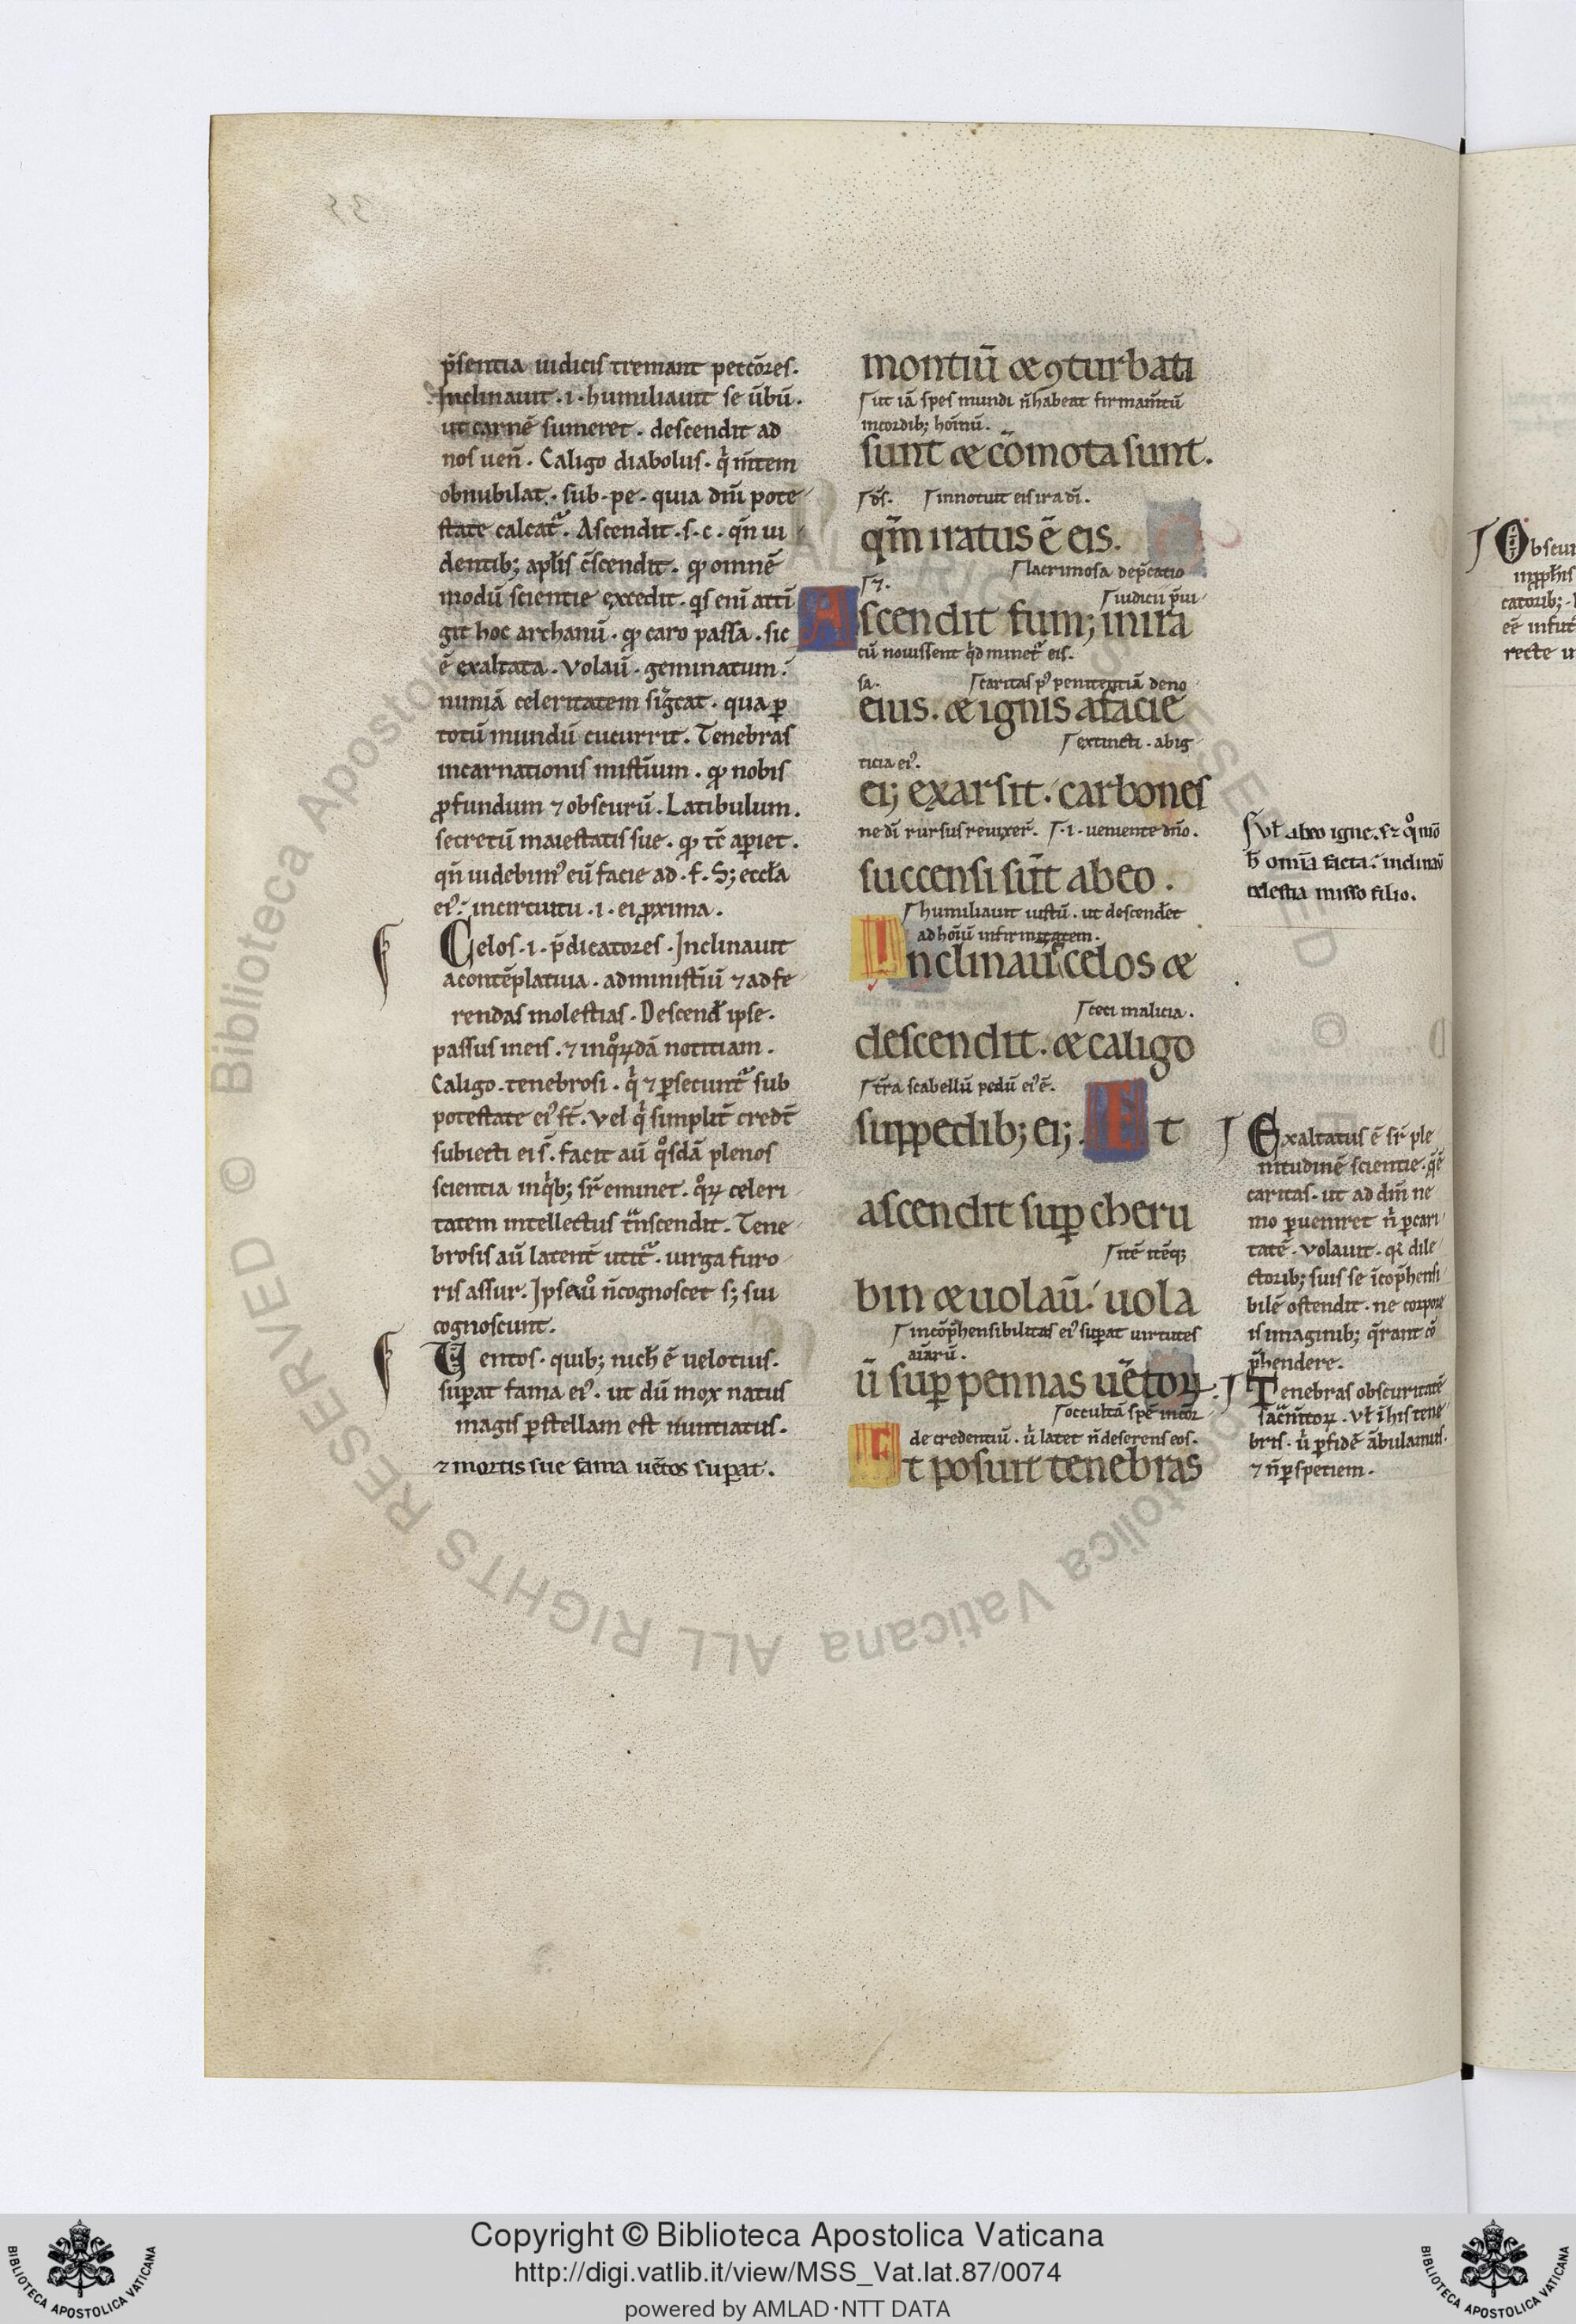 p̄sentia iudicis tremant peccōres.
Inclinauit .i. humiliauit se ūbū.
ut carnē sumeret. descendit ad
nos ueñ. Caligo diabolus. q̇ m̄tem
obnubilat. sub. pe. quia dīu pote
state calcat᷑. Ascendit .s.c. qn̄ ui
dentib; apl̄is c̄scendit. ꝙ omnē
modū scientie excedit. qͥs enī atti
git hoc archanū. ꝙ caro passa. sic
ē exaltata. Volaū. geminatum.
nimiā celeritatem siḡcat. qua ꝑ
totū mundū cucurrit. Tenebras
incarnationis mist̄ium. ꝙ nobis
ꝓfundum ⁊ obscurū. Latibulum.
secretū maiestatis sue. ꝙ tc̄ aꝑiet.
qn̄ uidebimꝰ eū facie ad .f. S; eccl̄a
eiꝰ. incircuitu .i. ei ꝓxima.
Celos .i. p̄dicatores. Inclinauit
acontēplatiua. administ̄iū ⁊ adfe
rendas molestias. Descend̄ ipse.
passus ineis. ⁊ inqͦꝝdā notitiam.
Caligo. tenebrosi. qͥ ⁊ ꝑsecunt᷑ sub
potestate eiꝰ st̄. Vel qͥ simplit̄ credt̄
subiecti ei s̄. facit aū qͦsdā plenos
scientia inqͥb; sr̄ eminet. qͦꝝ celeri
tatem intellectus tn̄scendit. Tene
brosis aū latent̄ utit᷑. uirga furo
ris assur. Ipse uͦ n̄cognoscet s; sui
cognoscunt.
Uentos. quib; nich̄ ē uelotius.
suꝑat fama eiꝰ. ut dū mox natus
magis ꝑstellam est nuntiatus.
⁊ mortis sue fama uētos suꝑat.
montiū æ ꝯturbati
ut iā spes mundi n̄habeat firmam̄tū
incordib; hoīnū.
sunt æ cōmota sunt.
d̄s. innotuit eis ira dī.
qm̄ iratus ē eis.
lacrimosa dep̄catio
⁊. iudicii p̄ui
Ascendit fum; inira
cū nouissent qͥd minet᷑ eis.
sa. caritas pꝰ penitentiā deno
eius. æ ignis afacie
extincti. abig
ticia eiꝰ.
ei; exarsit. carbones
ne dī rursus reuixer̄. .i. ueniente dn̄o.
succensi sūt abeo.
humiliauit iustū. ut descenderet
ad hoīū infirmitatem.
Inclinaū celos æ
ceci malicia.
descendit. æ caligo
t̄ra scabellū pedū eiꝰ ē.
suppedib; ei;. Et
ascendit suꝑ cheru
itē itēq;
bin æ uolaū. uola
incōp̄hensibilitas eiꝰ suꝑat uirtutes
aīarū.
ū suꝑ pennas uētoꝝ.
occultā spē incor
de credentiū. ū latet n̄ deserens eos.
Et posuit tenebras
Vl̄ abeo igne. Et qͦmō
h̄ omīa facta. inclinaū
celestia misso filio.
Exaltatus ē sr̄ ple
nitudinē scientie. q̄ ē
caritas. ut ad dm̄ ne
mo ꝑueniret n̄ ꝑcari
tatē. Volauit. qꝛ dile
ctorib; suis se īcop̄hensi
bilē ostendit. ne corpore
is imaginib; q̄rant cō
p̄hendere.
Tenebras obscuritatē
sac̄m̄toꝝ. Vl̄ ī his tene
bris. ū ꝑfidē ābulamus.
⁊ n̄ ꝑ spetiem.
Copyright © Biblioteca Apostolica Vaticana
http://digi.vatlib.it/view/MSS_Vat.lat.87/0074
powered by AMLAD·NTT DATA
BIBLIOTECA APOSTOLICA VATICANA
BIBLIOTECA APOSTOLICA VATICANA